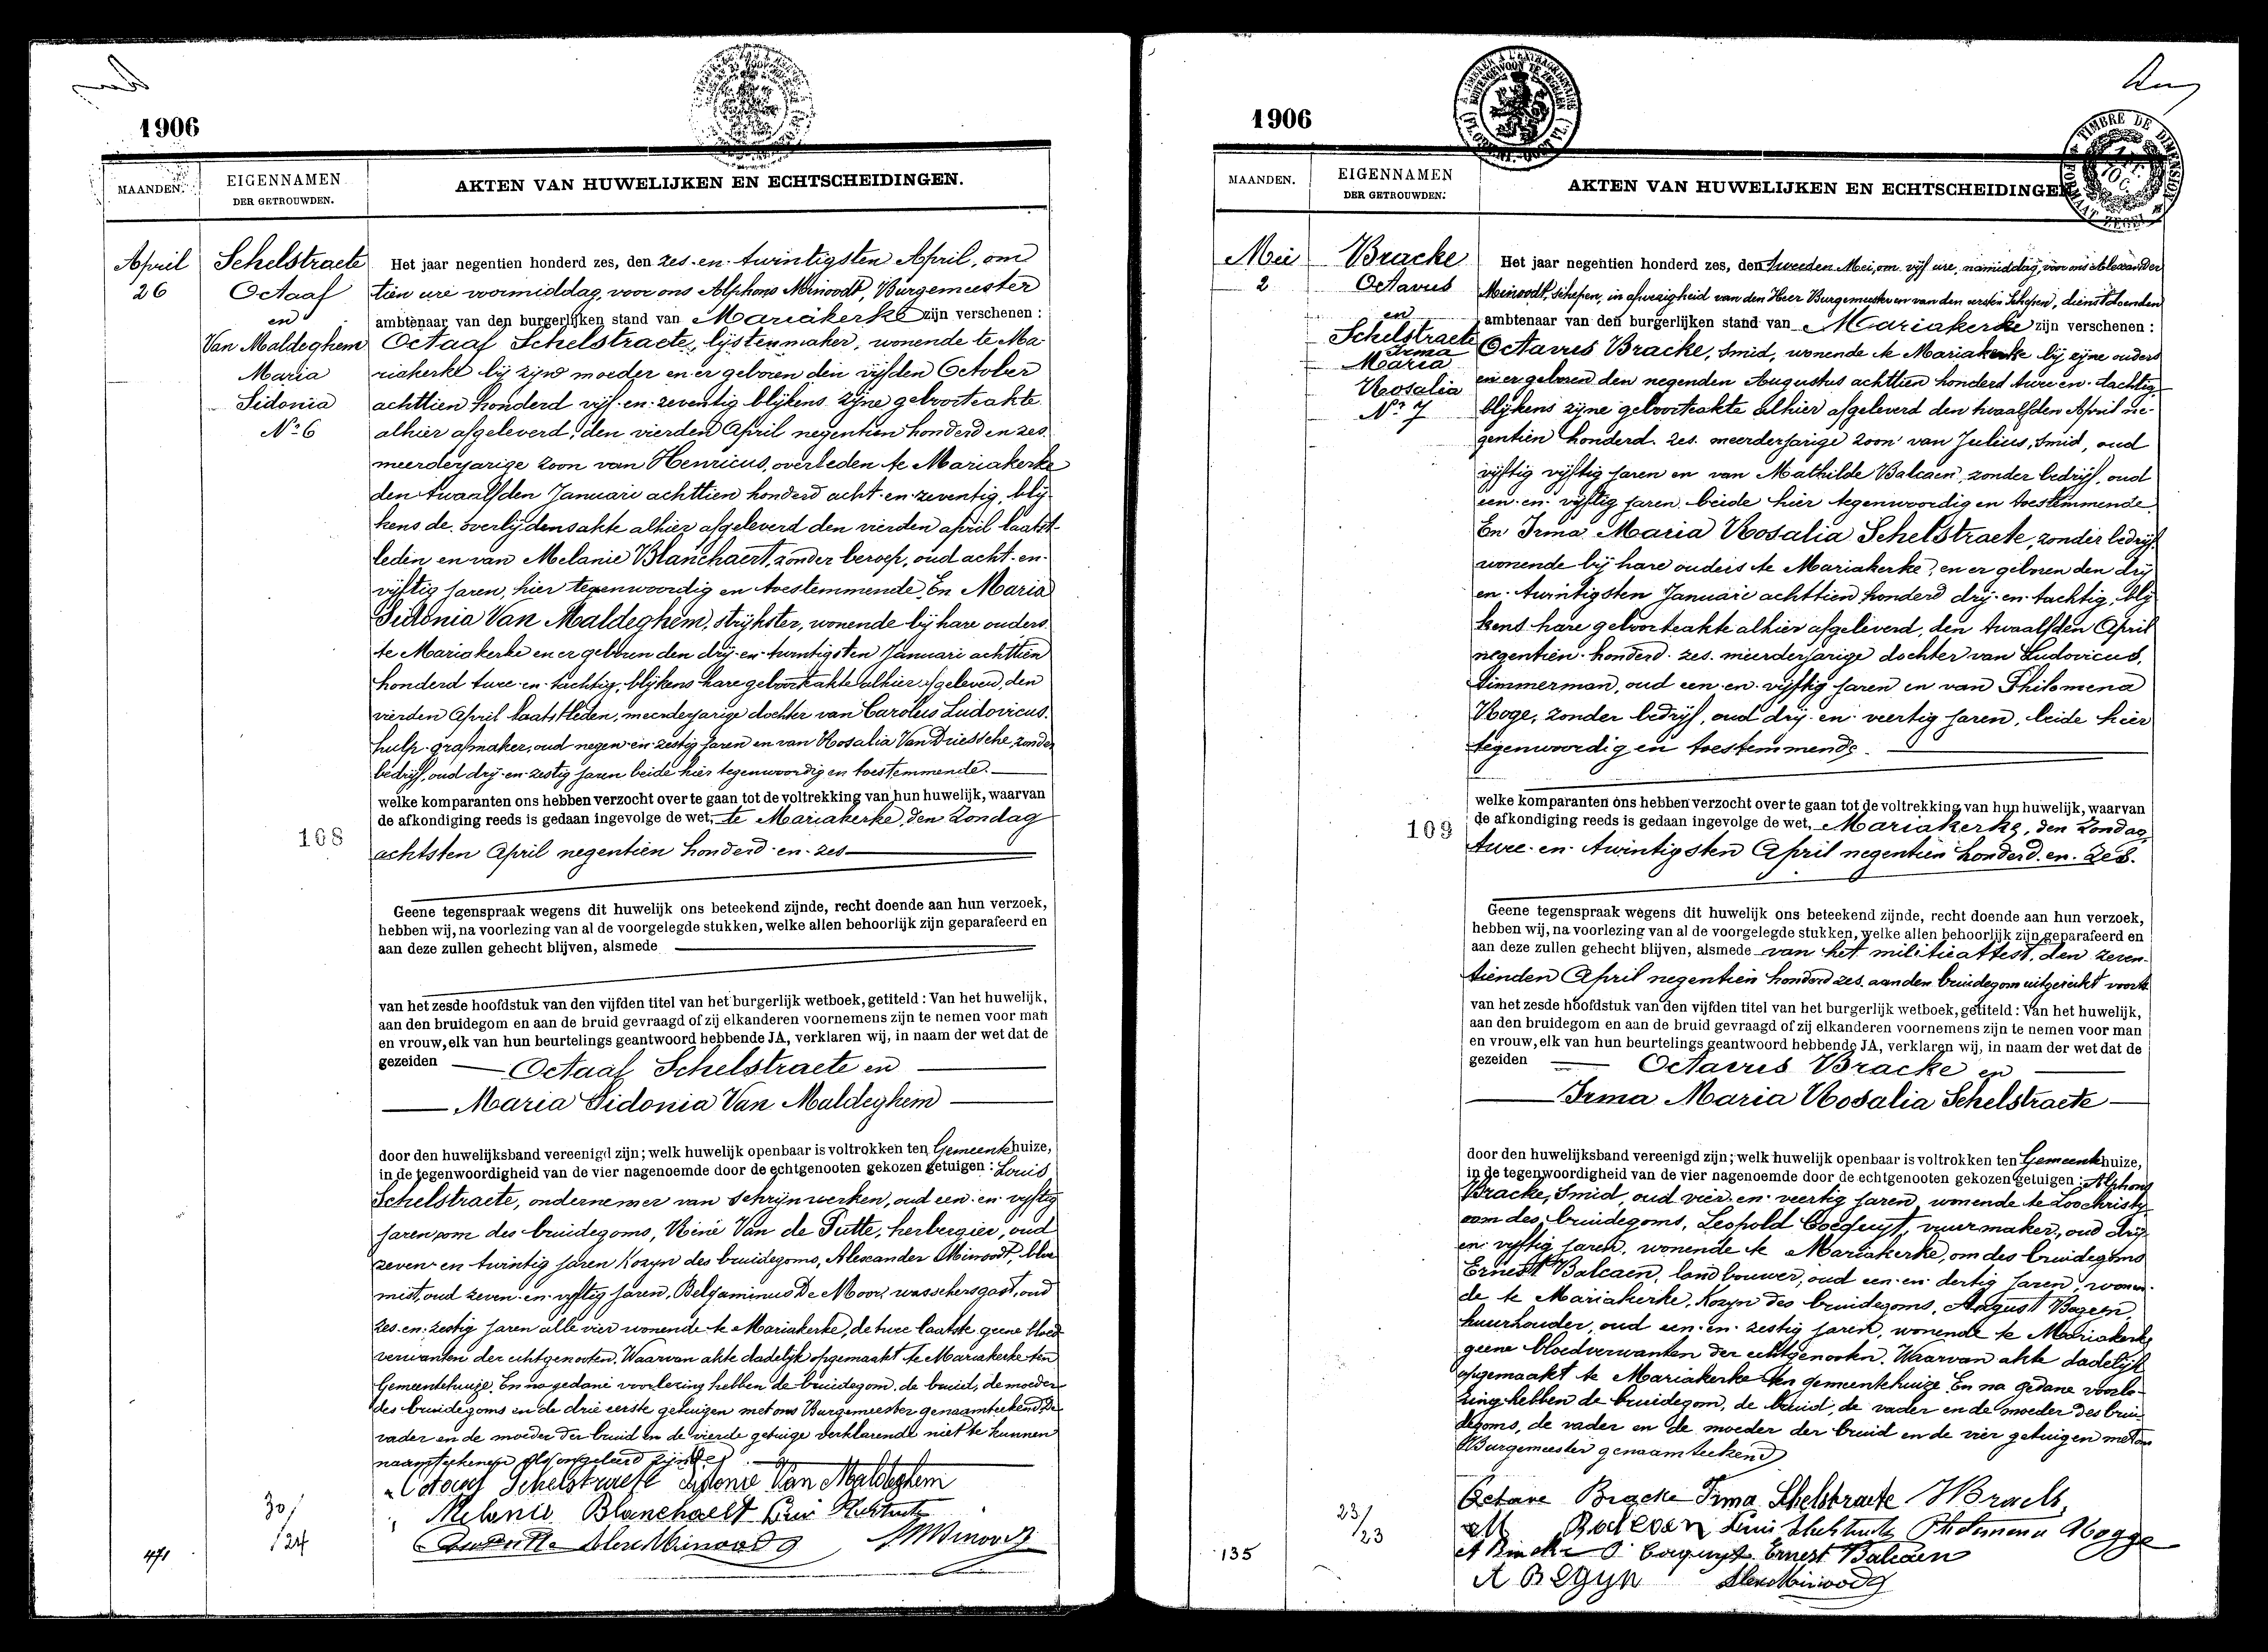 1906
AKTEN VAN HUWELIJKEN EN ECHTSCHEIDINGEN.
MAANDEN.
EIGENNAMEN
DER GETROUWDEN.
April
26
Schelstraete
Octaaf
en
Van Maldeghem
Maria
Sidonia
Nº 6
Het jaar negentien honderd zes, den zes-en-twintigsten April, om
tien ure voormiddag, voor ons Alphons Minoodt, Burgemeester
ambtenaar van den burgerlijken stand van Mariakerke zijn verschenen:
Octaaf Schelstraete, lijstenmaker, wonende te Ma-
riakerke bij zijne moeder en er geboren den vijfden October
achttien honderd vijf-en-zeventig blijkens zijne geboorteakte
alhier afgeleverd, den vierden April negentien honderd en zes.
meerderjarige zoon van Henricus, overleden te Mariakerke
den twaalfden Januari achttien honderd acht-en-zeventig, blij-
kens de overlijdensakte alhier afgeleverd den vierden april laatst-
leden en van Melanie Blanchaert, zonder beroep, oud acht-en-
vijftig jaren, hier tegenwoordig en toestemmende. En Maria
Sidonia Van Maldeghem, strijkster, wonende bij hare ouders
te Mariakerke en er geboren den drij-en-twintigsten Januari achttien
honderd twee-en-tachtig, blijkens hare geboorteakte alhier afgeleverd, den
vierden April laatstleden, meerderjarige dochter van Carolus Ludovicus.
hulp-grafmaker, oud negen-en-zestig jaren en van Rosalia Van Driessche, zonder
bedrijf, oud drij-en-zestig jaren beide hier tegenwoordig en toestemmende.
welke komparanten ons hebben verzocht over te gaan tot de voltrekking van hun huwelijk, waarvan
de afkondiging reeds is gedaan ingevolge de wet, te Mariakerke, den Zondag
108
achtsten April negentien honderd-en-zes
Geene tegenspraak wegens dit huwelijk ons beteekend zijnde, recht doende aan hun verzoek,
hebben wij, na voorlezing van al de voorgelegde stukken, welke allen behoorlijk zijn geparafeerd en
aan deze zullen gehecht blijven, alsmede
van het zesde hoofdstuk van den vijfden titel van het burgerlijk wetboek, getiteld: Van het huwelijk,
aan den bruidegom en aan de bruid gevraagd of zij elkanderen voornemens zijn te nemen voor man
en vrouw, elk van hun beurtelings geantwoord hebbende JA, verklaren wij, in naam der wet dat de
gezeiden Octaaf Schelstraete en
Maria Sidonia Van Maldeghem
door den huwelijksband vereenigd zijn; welk huwelijk openbaar is voltrokken ten Gemeentehuize,
in de tegenwoordigheid van de vier nagenoemde door de echtgenooten gekozen getuigen: Louis
Schelstraete, ondernemer van schrijnwerken, oud een-en-vijftig
jaren, om des bruidegoms, Réné Van de Putte, herbergier, oud
zeven-en twintig jaren Kozyn des bruidegoms, Alexander Minoodt, bloe-
mist, oud zeven-en-vijftig jaren, Beljaminus De Moor, wasschersgast, oud
zes-en-zestig jaren alle vier wonende te Mariakerke, de twee laatste geene bloed-
verwanten der echtgenooten. Waarvan akte dadelijk opgemaakt te Mariakerke ten
Gemeentehuize. En na gedane voorlezing hebben de bruidegom, de bruid, de moeder
des bruidegoms en de drie eerste getuigen met ons Burgemeester genaamteekend. De
vader en de moeder der bruid en de vierde getuige verklarende niet te kunnen
naamteekenen als ongeleerd zijnde.
Octaaf Schelstraete Sidonie Van Maldeghem
Melanie Blanchaert
Alex Minoodt
30/
/24
471
1906
AKTEN VAN HUWELIJKEN EN ECHTSCHEIDINGEN
TIMBRE DE DIMENSION
MAANDEN.
EIGENNAMEN
DER GETROUWDEN.
Mei
2
Bracke
Octavus
en
Schelstraete
Irma
Maria
Rosalia
Nº 7
Het jaar negentien honderd zes, den tweeden Mei, om vijf ure, namiddag, voor ons Alexander
Minoodt, Schepen, in afwezigheid van den Heer Burgemeester en van den eersten Schepen, dienstdoenden
ambtenaar van den burgerlijken stand van Mariakerke zijn verschenen:
Octavus Bracke, Smid, wonende te Mariakerke bij zijne ouders
en er geboren den negenden Augustus achttien honderd twee-en-tachtig,
blijkens zijne geboorteakte alhier afgeleverd den twaalfden April ne-
gentien honderd. zes. meerderjarige zoon van Julius, Smid, oud
vijftig vijftig jaren en van Mathilde Balcaen, zonder bedrijf, oud
een-en-vijftig jaren beide hier tegenwoordig en toestemmende.
En Irma Maria Rosalia Schelstraete, zonder bedrijf
wonende bij hare ouders te Mariakerke, en er geboren den drij
en-twintigsten Januari achttien honderd drij-en-tachtig, blij
kens hare geboorteakte alhier afgeleverd, den twaalfden April
negentien-honderd-zes. meerderjarige dochter van Ludovicus,
timmerman, oud een-en-vijftig jaren en van Philomena
Roge, zonder bedrijf, oud drij-en-veertig jaren, beide hier
tegenwoordig en toestemmende.
welke komparanten ons hebben verzocht over te gaan tot de voltrekking van hun huwelijk, waarvan
de afkondiging reeds is gedaan ingevolge de wet, Mariakerke, den Zondag,
109
twee-en-twintigsten April negentien honderd-en-zes.
Geene tegenspraak wegens dit huwelijk ons beteekend zijnde, recht doende aan hun verzoek,
hebben wij, na voorlezing van al de voorgelegde stukken, welke allen behoorlijk zijn geparafeerd en
aan deze zullen gehecht blijven, alsmede van het militieattest, den zeven-
tienden April negentien honderd zes. aan den bruidegom uitgereikt voorts
van het zesde hoofdstuk van den vijfden titel van het burgerlijk wetboek, getiteld: Van het huwelijk,
aan den bruidegom en aan de bruid gevraagd of zij elkanderen voornemens zijn te nemen voor man
en vrouw, elk van hun beurtelings geantwoord hebbende JA, verklaren wij, in naam der wet dat de
gezeiden Octavus Bracke en
Irma Maria Rosalia Schelstraete
door den huwelijksband vereenigd zijn; welk huwelijk openbaar is voltrokken ten Gemeentehuize,
in de tegenwoordigheid van de vier nagenoemde door de echtgenooten gekozen getuigen: Alphons
Bracke, Smid, oud vier-en-veertig jaren, wonende te Loochristy
oom des bruidegoms, Leopold Cocquyt, vuurmaker, oud drij-
en-vijftig jaren, wonende te Mariakerke, om des bruidegoms
Ernest Balcaen, landbouwer, oud een-en-dertig jaren, wonen-
de te Mariakerke, Kozyn des bruidegoms, August Begyn,
huurhouder, oud een-en-zestig jaren, wonende te Mariakerke
geene bloedverwanten der echtgenooten. Waarvan akte dadelijk
opgemaakt te Mariakerke ten gemeentehuize. En na gedane voorle-
zing hebben de bruidegom, de bruid, de vader en de moeder des brui-
degoms, de vader en de moeder der bruid en de vier getuigen met ons
Burgemeester genaamteekend
Octave Bracke Irma Schelstraete
Philomena Rogge
Cocquyt Ernest Balcaen
A Begyn Alex Minoodt
23/
/23
135